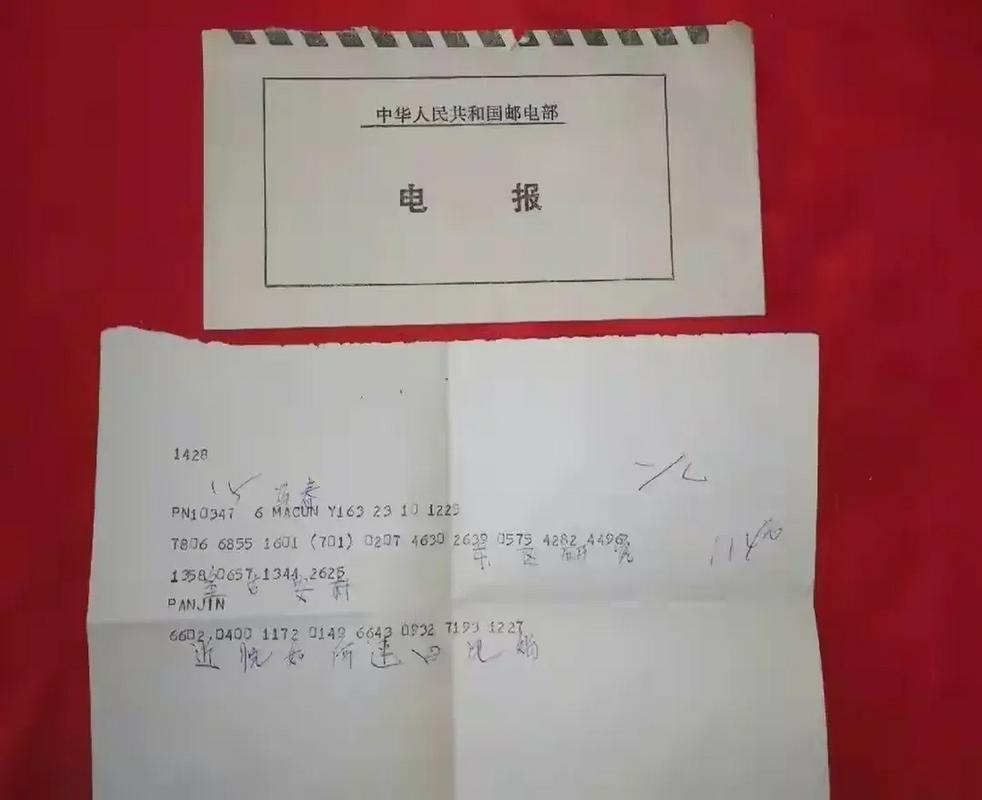 中华人民共和国邮电部
电 报
1428
PN10347 6 MACUN Y163 23 10 1225
7806 6855 1601 (701) 0207 4630 2639 0575 4282 4496
东 区 研 究
1358 0657 1344 2625
室 安
PANJIN
6602 0400 1172 0149 6643 0932 7193 1227
近 如 何 速 回 电